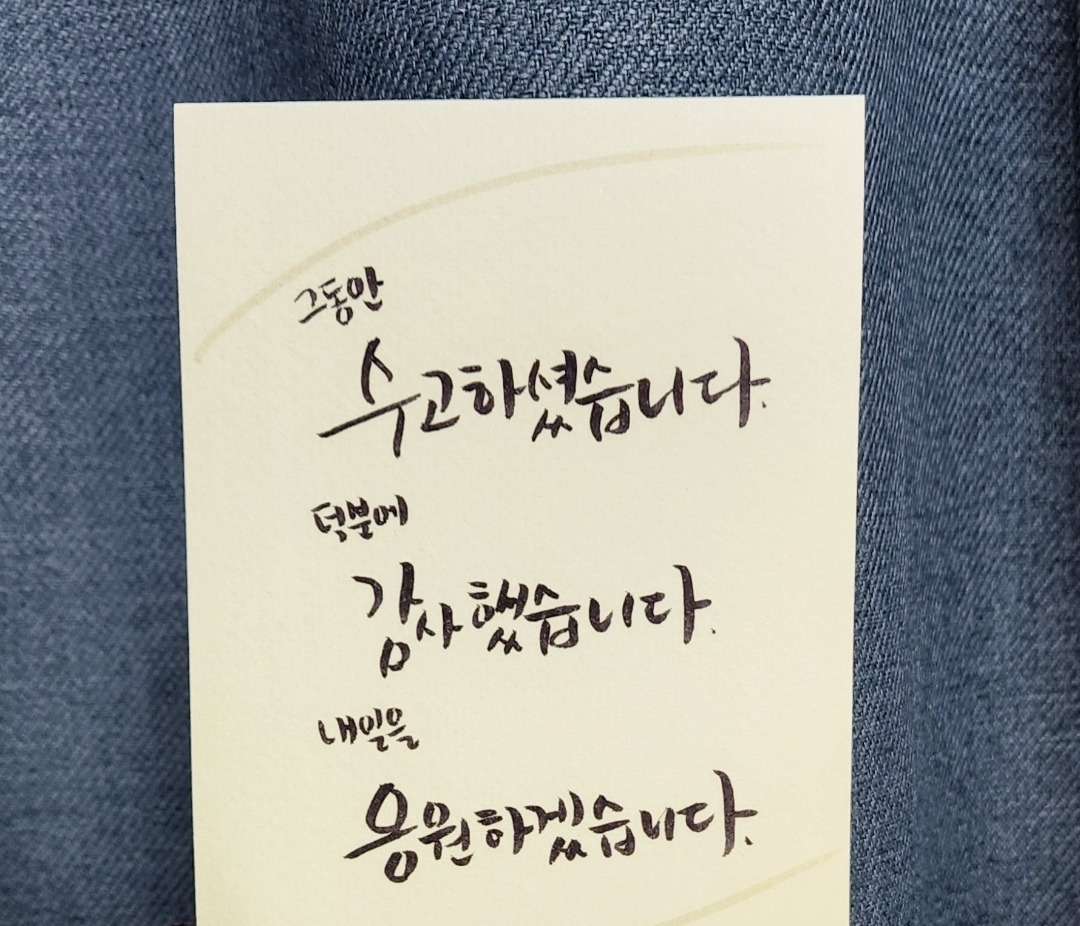 그동안
수고하셨습니다.
덕분에
감사했습니다.
내일을
응원하겠습니다.